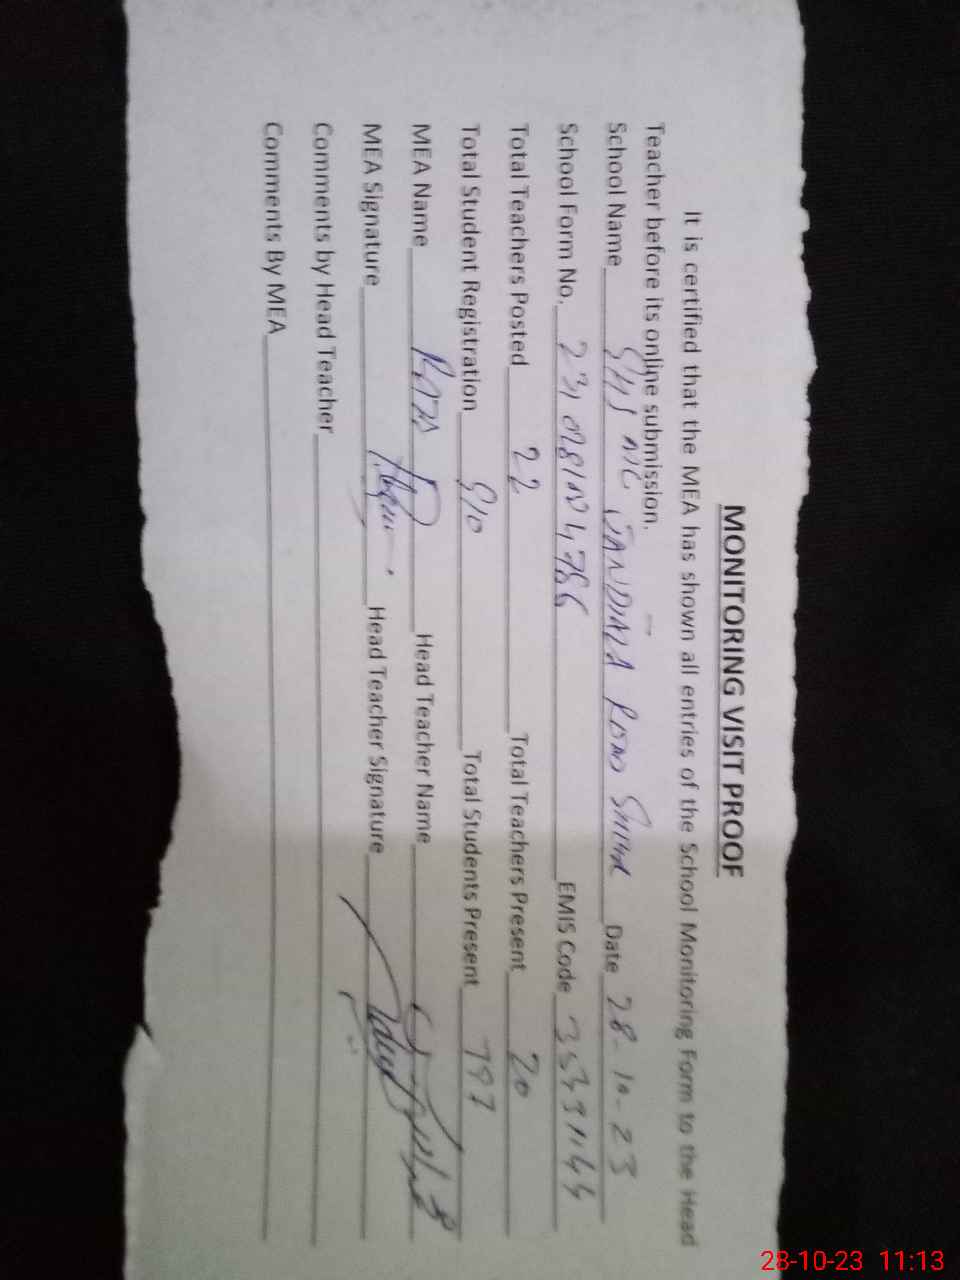 MONITORING VISIT PROOF
It is certified that the MEA has shown all entries of the School Monitoring Form to the Head
Teacher before its online submission.
School Name GHS MC JANDIALA ROAD Date 28-10-23
School Form No. EMIS Code
Total Teachers Posted 22 Total Teachers Present 20
Total Student Registration 910 Total Students Present 797
MEA Name Head Teacher Name
MEA Signature Head Teacher Signature
Comments by Head Teacher
Comments By MEA
28-10-23 11:13